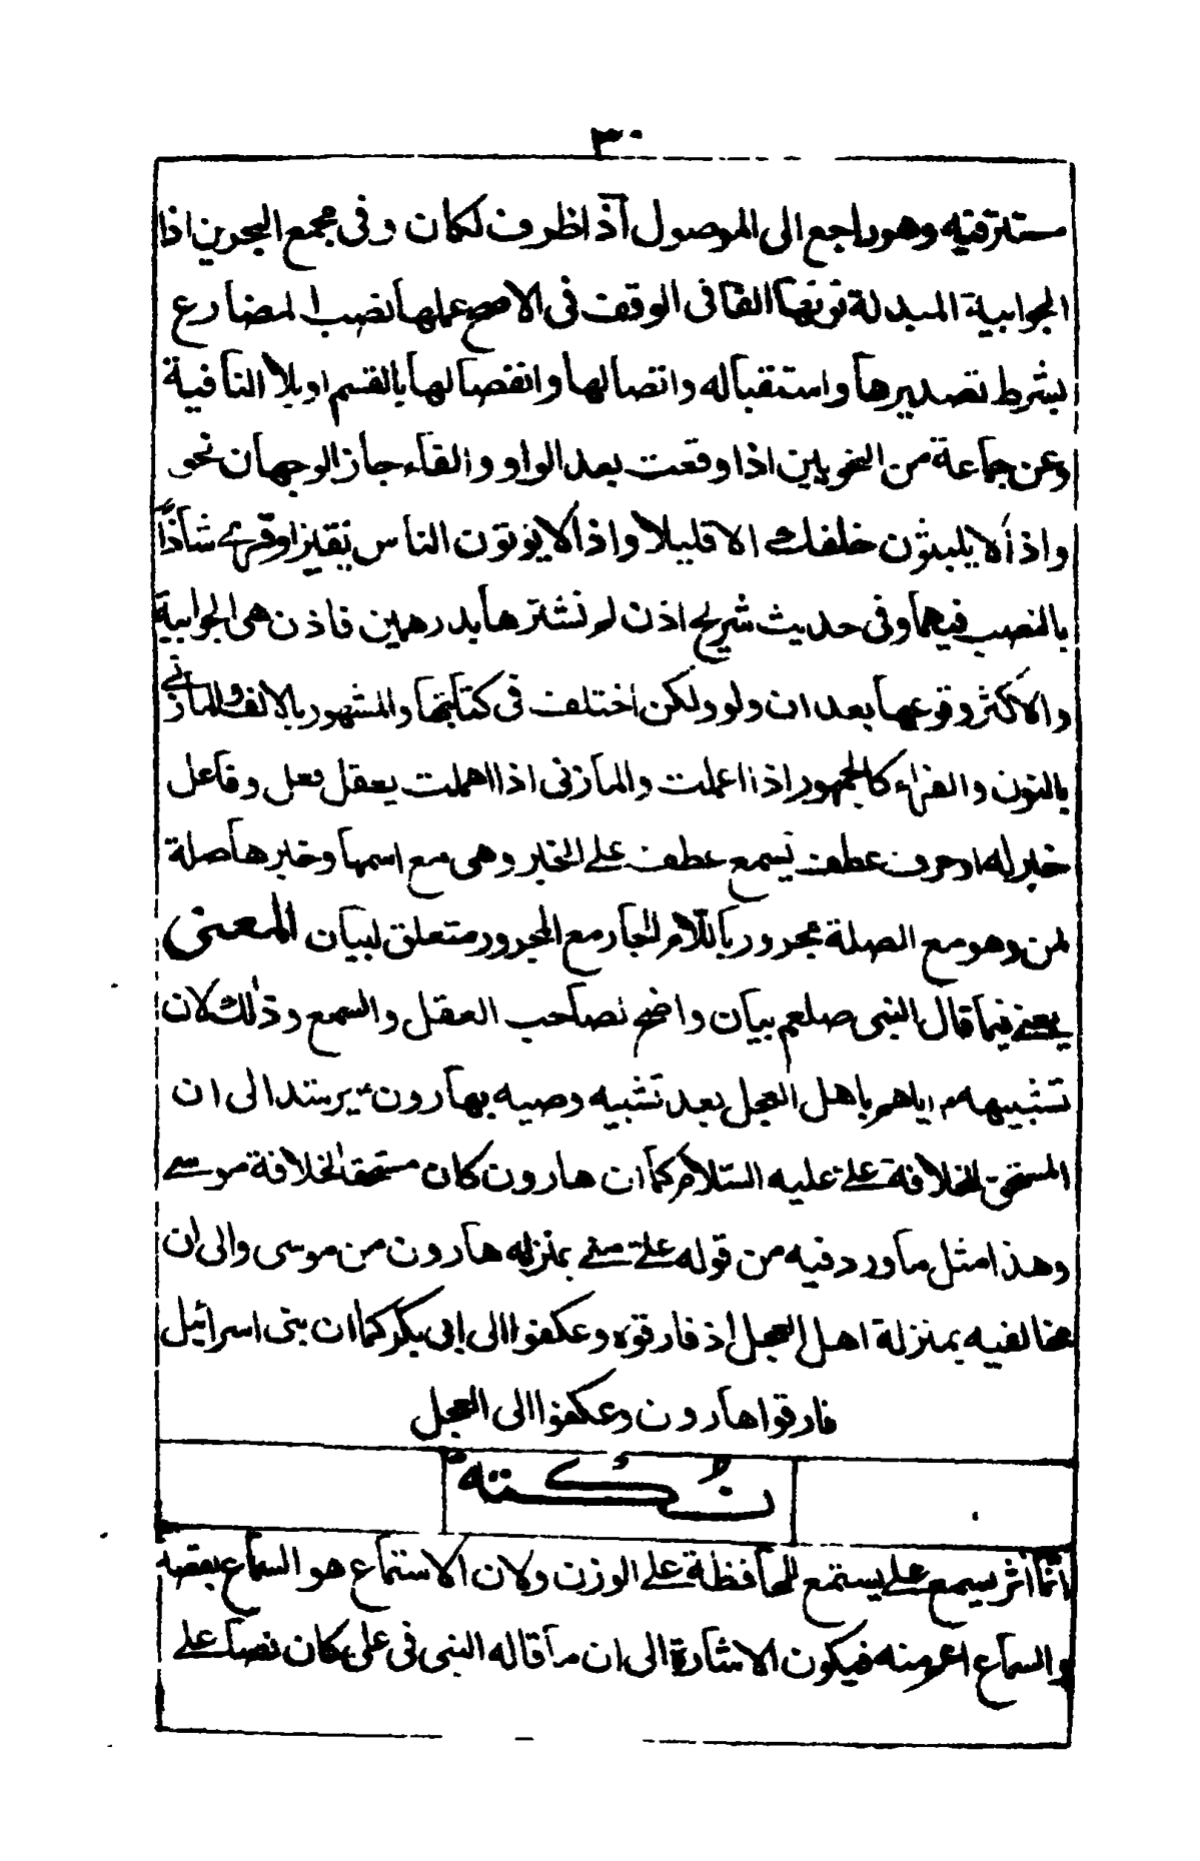 ٣٠
مستتر فيه وهو راجع الى الموصول اذا ظرف لكان وفى مجمع البحرين اذا
الجوابية المبدلة نونها الفا فى الوقف فى الاصح عملها نصب المضارع
بشرط تصديرها واستقباله واتصالها وانفصالها بالقسم او بلا النافية
وعن جماعة من النحويين اذا وقعت بعد الواو والفاء جاز الوجهان نحو
واذا لا يلبثون خلفك الا قليلا واذا لا يؤتون الناس نقيرا وقرئ شاذا
بالنصب فيهما وفى حديث شريح اذن لم نشترها بدرهمين فاذن هى الجوابية
والاكثر وقوعها بعد ان ولو ولكن اختلف فى كتابتها والمشهور بالالف والمازنى
بالنون والفراء كالجمهور اذا اعملت والمازنى اذا اهملت يعقل فعل وفاعل
خبر له او حرف عطف يسمع عطف على الخبر وهى مع اسمها وخبرها صلة
لمن وهو مع الصلة مجرور باللام الجار مع المجرور متعلق لبيان المعنى
يعنى فيما قال النبى صلعم بيان واضح لصاحب العقل والسمع وذلك لان
تشبيهه اياهم باهل العجل بعد تشبيه وصيه بهارون يرشد الى ان
المستحق للخلافة على عليه السلام كما ان هارون كان مستحقا لخلافة موسى
وهذا مثل ما ورد فيه من قوله على منى بمنزله هارون من موسى والى ان
مخالفيه بمنزلة اهل العجل اذ فارقوه وعكفوا الى ابى بكر كما ان بنى اسرائيل
فارقوا هارون وعكفوا الى العجل
نكتة
انما اثر يسمع على يستمع للمحافظة على الوزن ولان الاستماع هو السماع بقصد
والسماع اعم منه فيكون الاشارة الى ان ما قاله النبى فى على كان نصا على